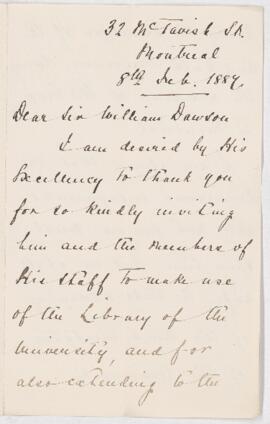 32 McTavish St.
Montreal
8th Feb. 1887.
Dear Sir William Dawson
I am desired by His
Excellency to thank you
for so kindly inviting
him and the members of
His staff to make use
of the Library of the
University, and for
also extending to the